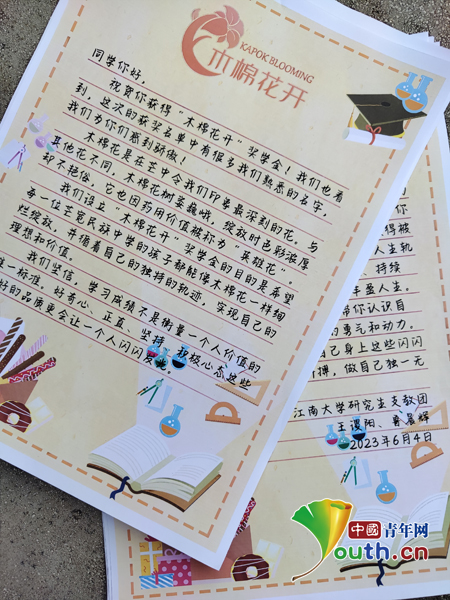 KAPOK BLOOMING
木棉花开
同学你好,
祝贺你获得"木棉花开"奖学金!我们也看
到,这次的获奖名单中有很多我们熟悉的名字,
我们为你们感到骄傲!
木棉花是在芒中令我们印象最深刻的花。与
其他花不同,木棉花树茎巍峨,绽放时色彩浓厚
却不艳俗,它也因药用价值被称为"英雄花"。
我们设立"木棉花开"奖学金的目的是希望
每一位芒宽民族中学的孩子都能像木棉花一样绚
烂绽放,并循着自己的独特的轨迹,实现自己的
理想和价值。
我们坚信,学习成绩不是衡量一个人价值的
唯一标准。好奇心、正直、坚持、积极心态这些
好的品质更会让一个人闪闪发光
你
得被
人生轨
持续
丰盈人生。
帮你认识自
的勇气和动力。
己身上这些闪
拼搏,做自己独一无
江南大学研究生支教团
2023年6月4日
中國青年网
Youth.cn